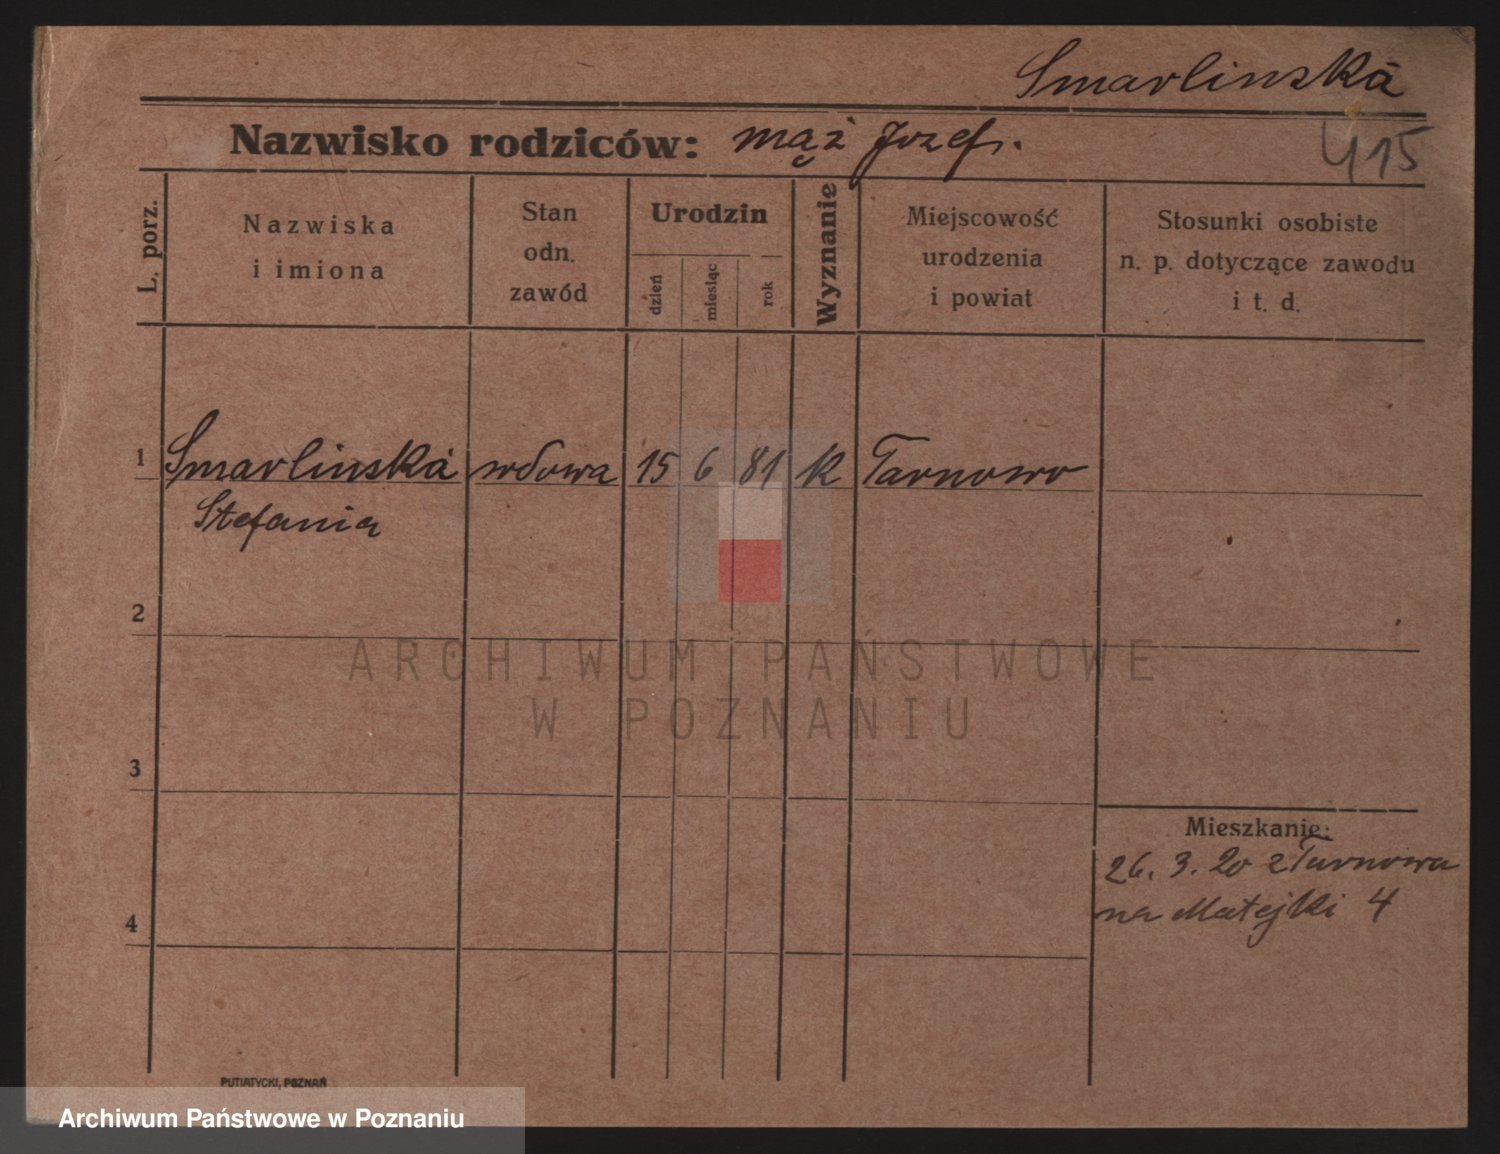 Smarlinska
Nazwisko rodziców: mąż Jozef.
415
L. porz.
Nazwiska
i imiona
Stan
odn.
zawód
Urodzin
dzień
miesiąc
rok
Wyznanie
Miejscowość
urodzenia
i powiat
Stosunki osobiste
n. p. dotyczące zawodu
i t. d.
1 Smarlinska wdowa 15 6 81 K Tarnowo
Stefania
2
ARCHIWUM PAŃSTWOWE
W POZNANIU
3
Mieszkanie:
26. 3. 20 z Tarnowa
na Matejki 4
4
PUTIATYCKI, POZNAŃ
Archiwum Państwowe w Poznaniu